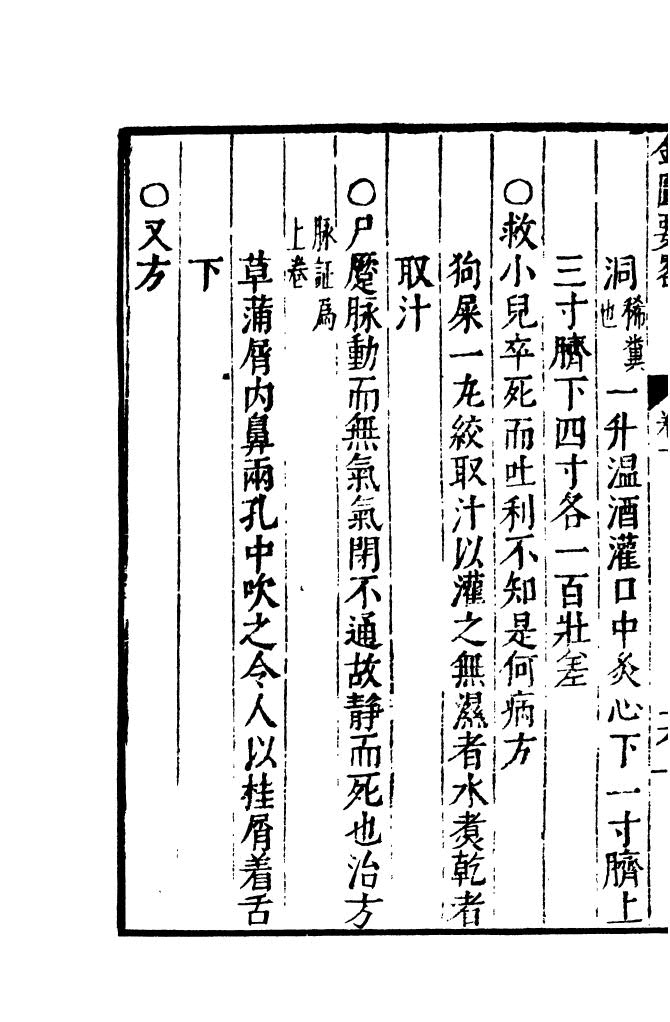 金匱要略
洞稀糞也一升温酒灌口中灸心下一寸臍上
三寸臍下四寸各一百壯差
○救小兒卒死而吐利不知是何病方
狗屎一丸絞取汁以灌之無濕者水煑乾者
取汁
○尸蹷脉動而無氣氣閉不通故静而死也治方
脉証爲上卷
草蒲屑内鼻兩孔中吹之令人以桂屑着舌
下
○又方